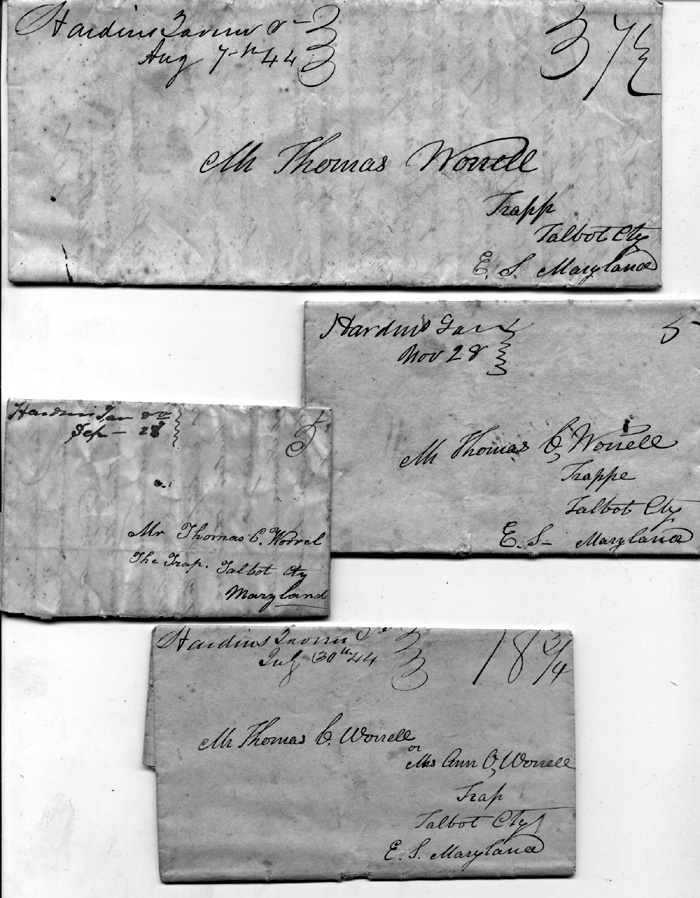 Hardins Tavern Va
Aug 7th 44
37½
Mr Thomas Worrell
Trapp
Talbot Cty
E. S. Maryland
Hardins Tav
Nov 28
5
Mr Thomas C, Worrell
Trappe
Talbot Cty
E. S- Maryland
Hardins Tav Va
Sep - 28
5
Mr Thomas C. Worrel
The Trap. Talbot Cty
Maryland
Hardins Tavern
July 30th 44
18¾
Mr Thomas C. Worrell
or
Mrs Ann C, Worrell
Trap
Talbot Cty
E. S. Maryland